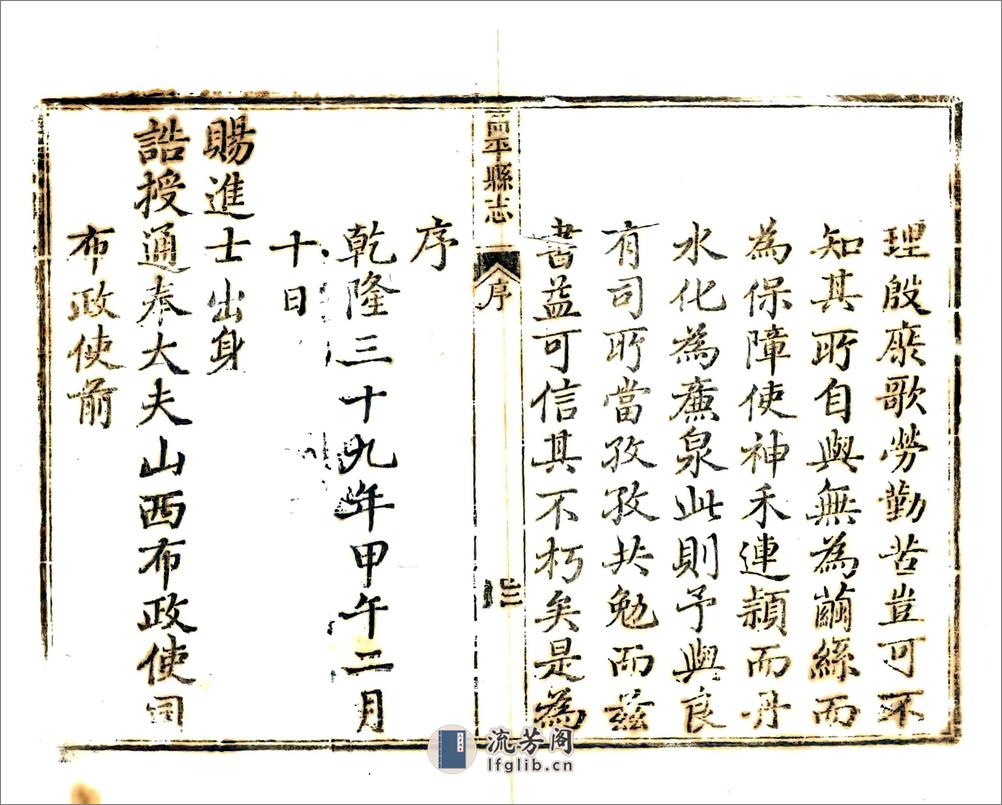 理殷廑歌勞勤苦豈可不
知其所自與無為繭絲而
為保障使神禾連穎而丹
水化為廉泉此則予與良
有司所當孜孜共勉而茲
書益可信其不朽矣是為
高平縣志
序
三
序
乾隆三十九年甲午二月
十日
賜進士出身
誥授通奉大夫山西布政使司
布政使前
流芳阁
lfglib.cn